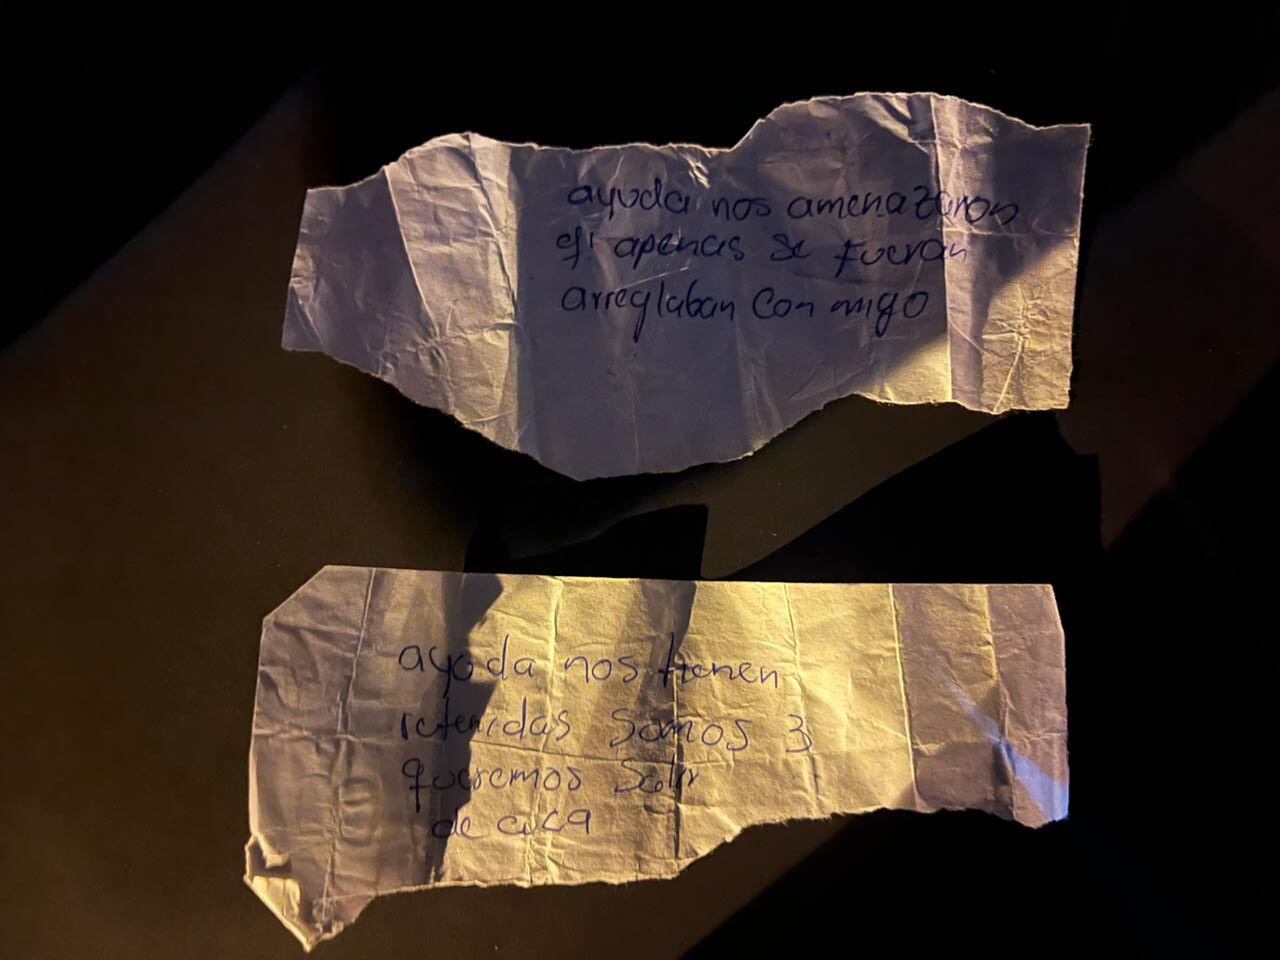 ayuda nos amenazaron
apenas se fueran
arreglaban con migo
ayuda nos tienen
retenidas somos 3
queremos salir
de